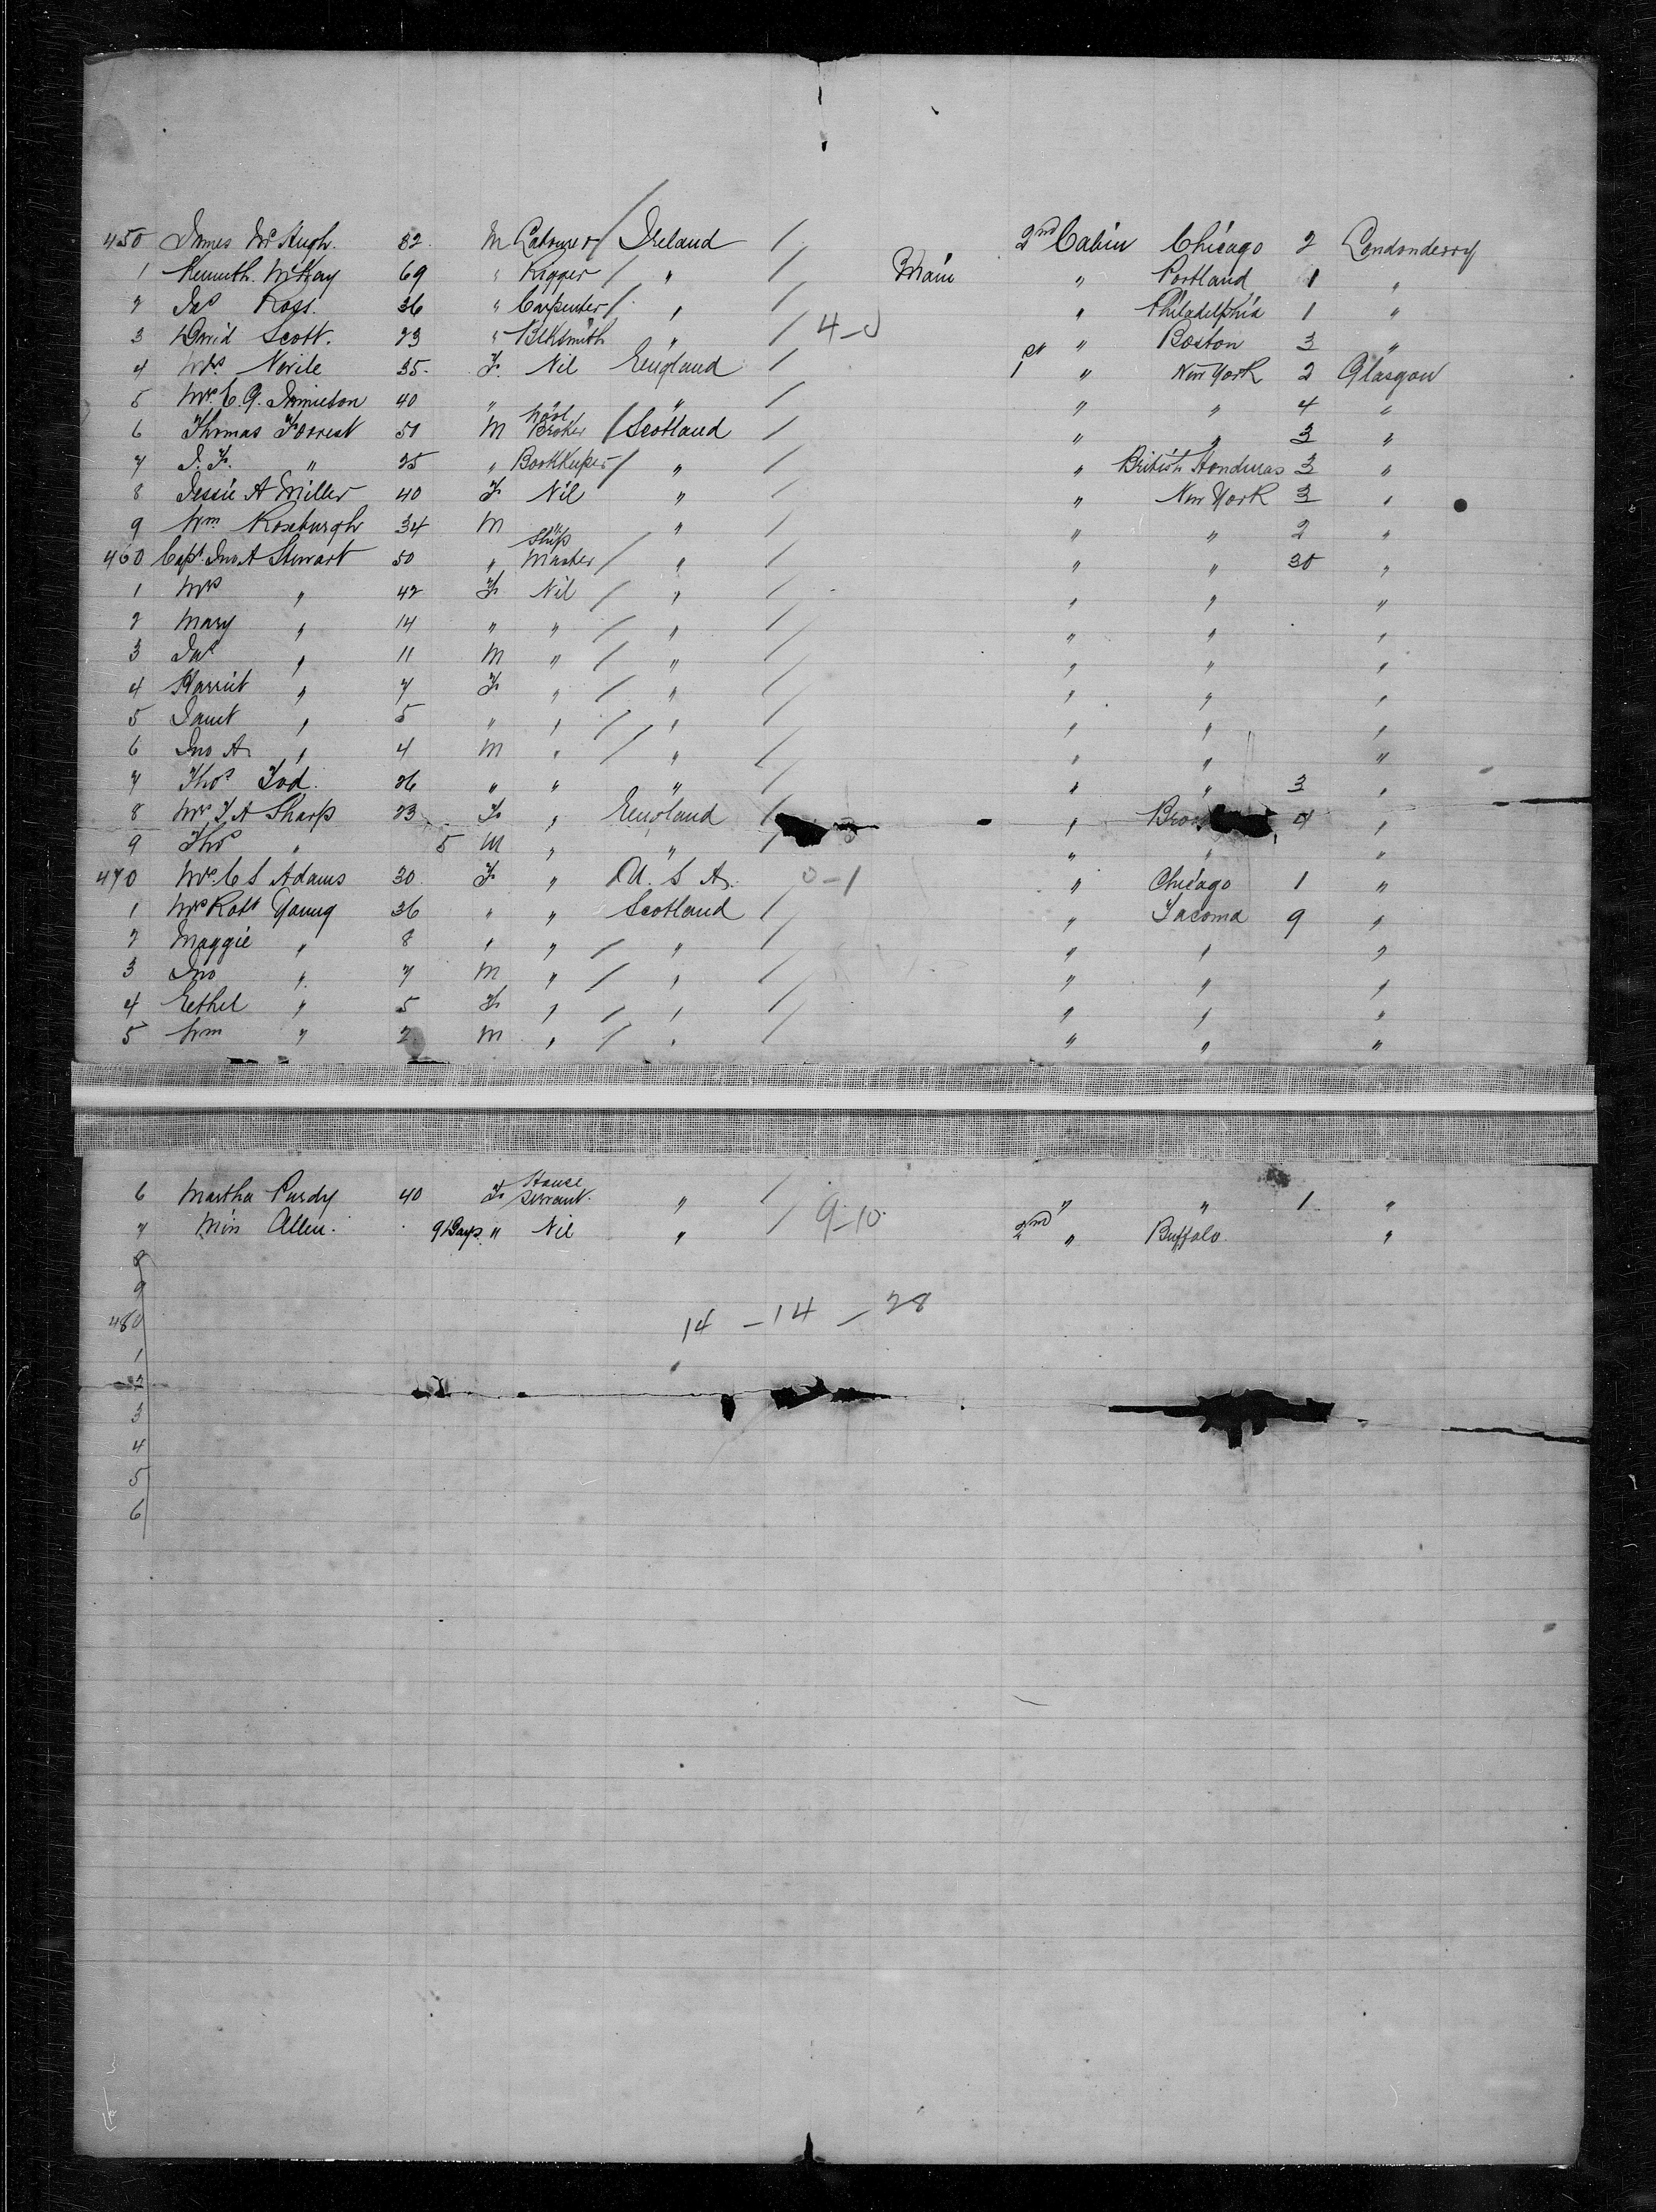 450 James McHugh. 32. M Labourer / Ireland / 2nd Cabin Chicago 2 Londonderry
1 Kenneth McKay 69 " Rigger / " / Main " Portland 1 "
2 Jas Ross. 36 " Carpenter / " / " Philadelphia 1 "
3 David Scott. 23 " Blksmith " / 4-0 " Boston 3 "
4 Mrs. Nevile 35. F. Nil England / 1st " New York 2 Glasgow
5 Mrs. C. G. Jamieson 40 " " " / " " 4 "
6 Thomas Forrest 51 M Wool Broker / Scotland / " " 3 "
7 J. F. " 25 " Bookkeeper / " / " British Honduras 3 "
8 Jessie A Miller 40 F Nil " / " New York 3 "
9 Wm Roseburgh 34 M " " / " " 2 "
460 Capt. Jno. A Stewart 50 " Ship Master / " / " " 30 "
1 Mrs " 42 F Nil / " / " " "
2 Mary " 14 " " / " / " " "
3 Jas " 11 M " / " / " " "
4 Harriet " 7 F " / " / " " "
5 Janet " 5 " " / " / " " "
6 Jno A. " 4 M " / " / " " "
7 Thos Tod. 26 " " " / " " 3 "
8 Mrs T A Sharp 23 F " England / " 4 "
9 Thos " 5 M " " / " " "
470 Mrs. C S Adams 30. F " U. S. A. 0-1 " Chicago 1 "
1 Mrs Robt Young 36 " " Scotland / " Tacoma 9 "
2 Maggie " 8 " " / " / " " "
3 Jno " 7 M " / " / " " "
4 Eethel " 5 F " / " / " " "
5 Wm " 2 M " / " / " " "
6 Martha Purdy 40 F House Servant. " / " " 1 "
7 Miss Allen. 9 Days. " Nil " / 9-10 2nd " Buffalo "
8
9
480
1 14 - 14 - 28
2
3
4
5
6